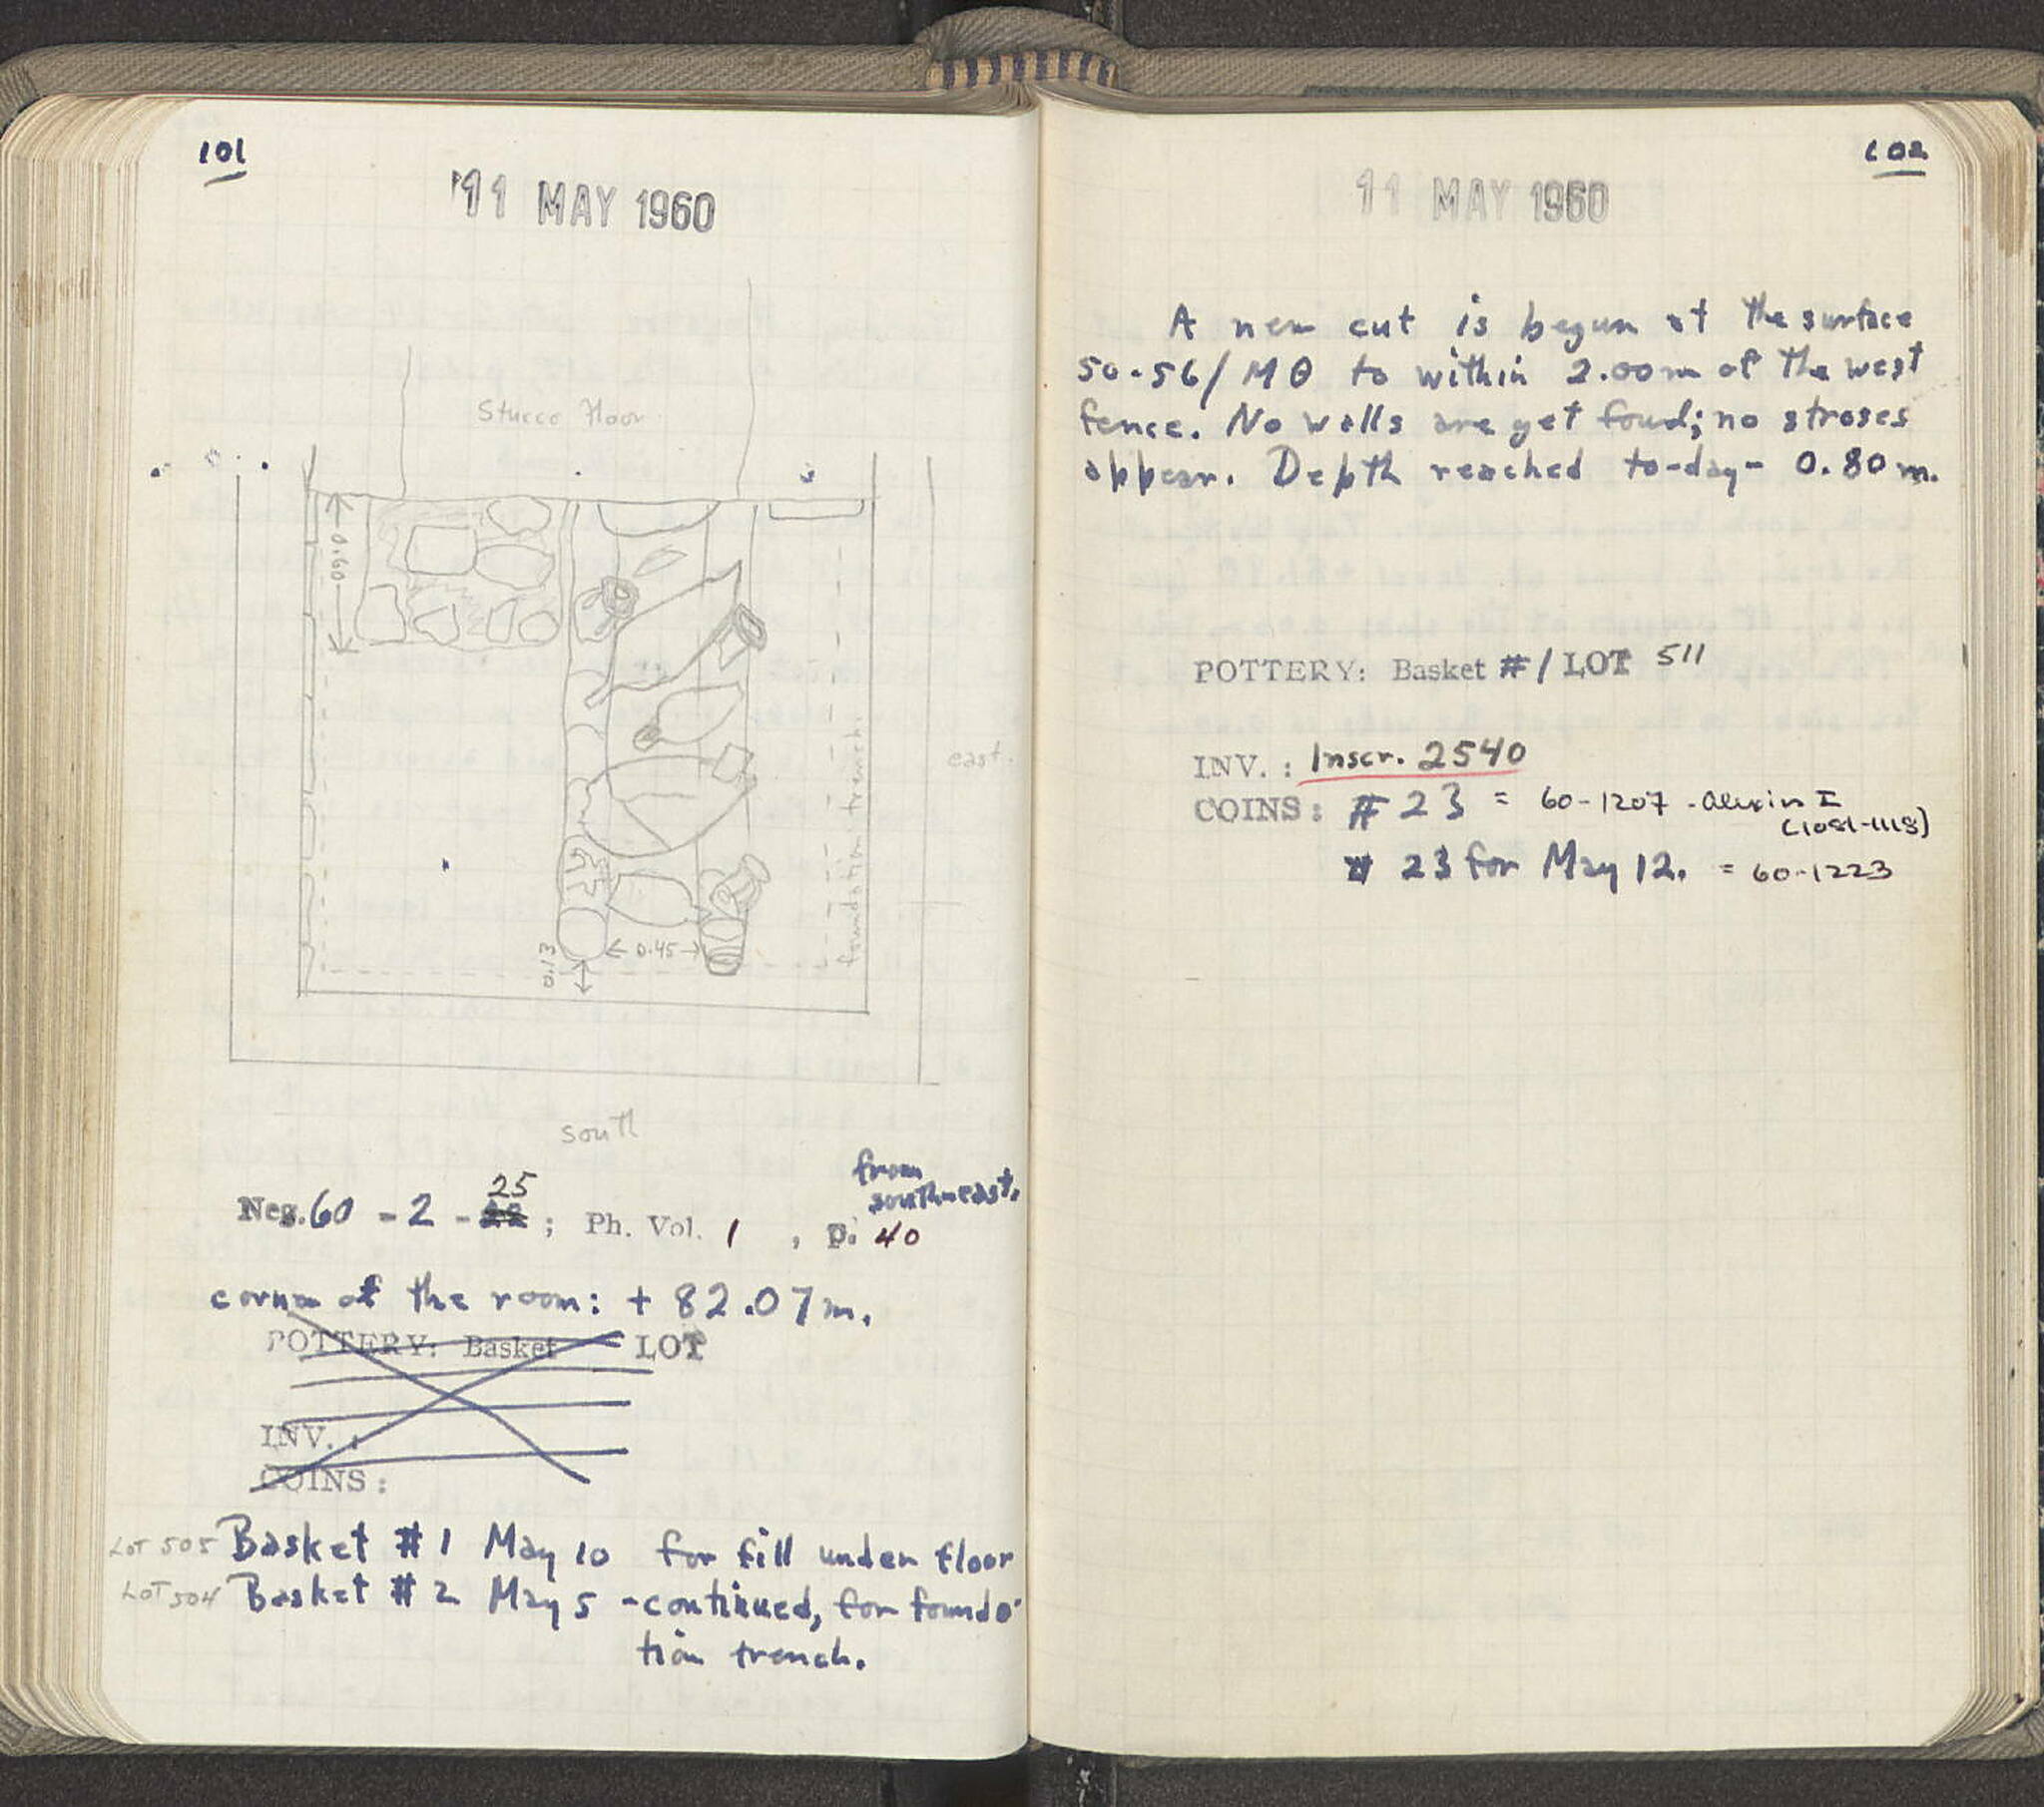 101
11 MAY 1960
Stucco floor
0.60
east.
foundation trench.
0.13
0.45
south
from
southeast.
25
Neg. 60 - 2 - ; Ph. Vol. 1 , p. 40
corner of the room: + 82.07 m.
POTTERY: Basket LOT
INV. :
COINS :
LOT 505 Basket # 1 May 10 for fill under floor
LOT 504 Basket # 2 May 5 - continued, for founda-
tion trench.
102
11 MAY 1960
A new cut is begun at the surface
50-56/MΘ to within 2.00m of the west
fence. No walls are yet foud; no stroses
appear. Depth reached to-day - 0.80 m.
POTTERY: Basket # 1 LOT 511
INV. : Inscr. 2540
COINS : # 23 = 60-1207 - Alexius I
(1081-1118)
# 23 for May 12. = 60-1223